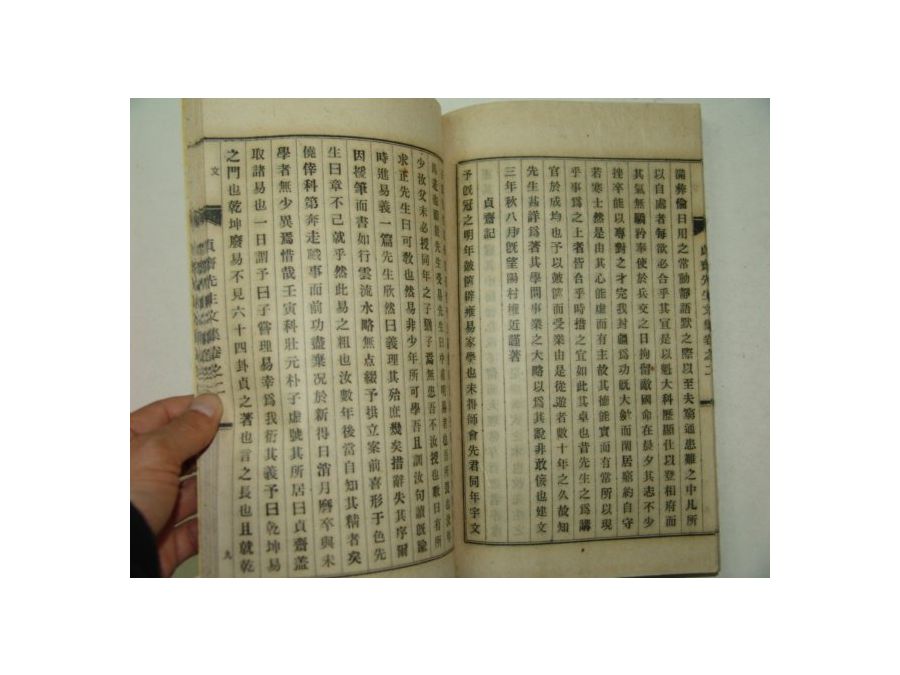 彛倫日用之常動靜語默之際以至夫窮通患難之中凡所
以自處者每欲必合乎其宜是以魁大科歷顯仕登相府而
其氣無驕矜奉使於兵交之日拘留敵國命在晨夕其志不少
挫卒能以專對之才完我封疆爲功旣大躬而閑居窮約自守
若寒士然是由其心能虛而有主故其德能實而有常所以現
乎事爲之上者皆合乎時措之宜如此其卓也昔先生之爲講
官於成均也予以皷篋而受業由是從遊者數十年之久故知
先生甚詳爲著其學問事業之大略以爲其說非敢僭也建文
三年秋八月旣望陽村權近謹著
貞齋記
予旣冠之明年皷篋辟雍易家學也未得師會先君同年宇文
貞齋先生文集卷之二
少汝父未必授同年之子猶子焉無患吾不汝授也歎曰有所
求正先生曰可敎也然易非少年所可學吾且訓汝句讀旣踰
時進易義一篇先生欣然曰義理其殆庶幾矣措辭失其序爾
因援筆而書如行雲流水略無点綴予拱立案前喜形于色先
生曰章不已就乎然此易之粗也汝數年後當自知其精者矣
僥倖科第奔走職事而前功盡棄况於新得日消月磨卒與未
學者無少異焉惜哉壬寅科壯元朴子虛號其所居曰貞齋盖
取諸易也一日謂予曰子嘗理易幸爲我衍其義予曰乾坤易
之門也乾坤廢易不見六十四卦貞之著也言之長也且就乾
貞齋先生文集卷之二
文
九